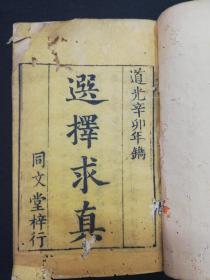 道光辛卯年鐫
選擇求真
同文堂梓行